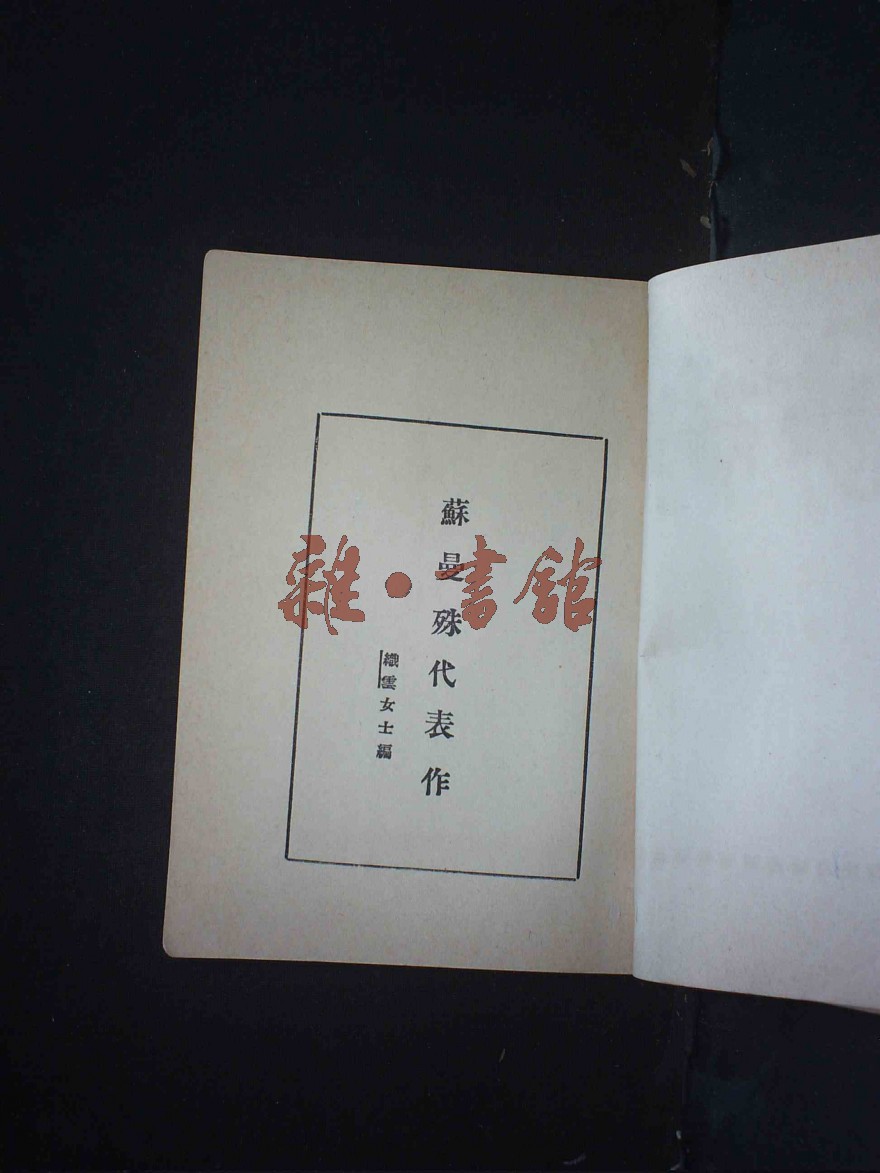 蘇曼殊代表作
織雲女士編
雜·書館